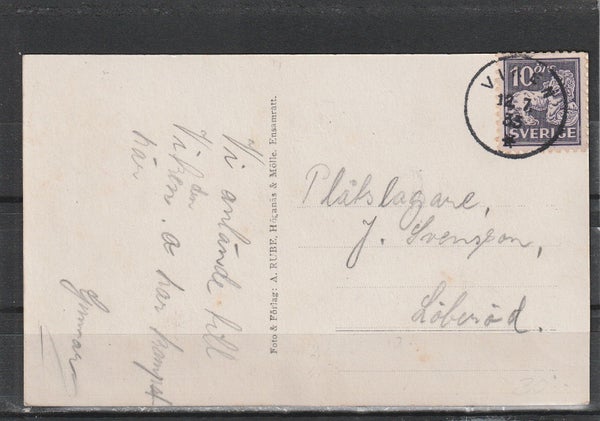 Vi anlände till
Viken den
. a har kampat
här
Gunnar
Foto & Förlag: A. RUBE, Höganäs & Mölle. Ensamrätt.
10 ÖRE
SVERIGE
VIKEN
12.7.
33
Plåtslagare,
J. Svenson,
Löberöd.
30:-